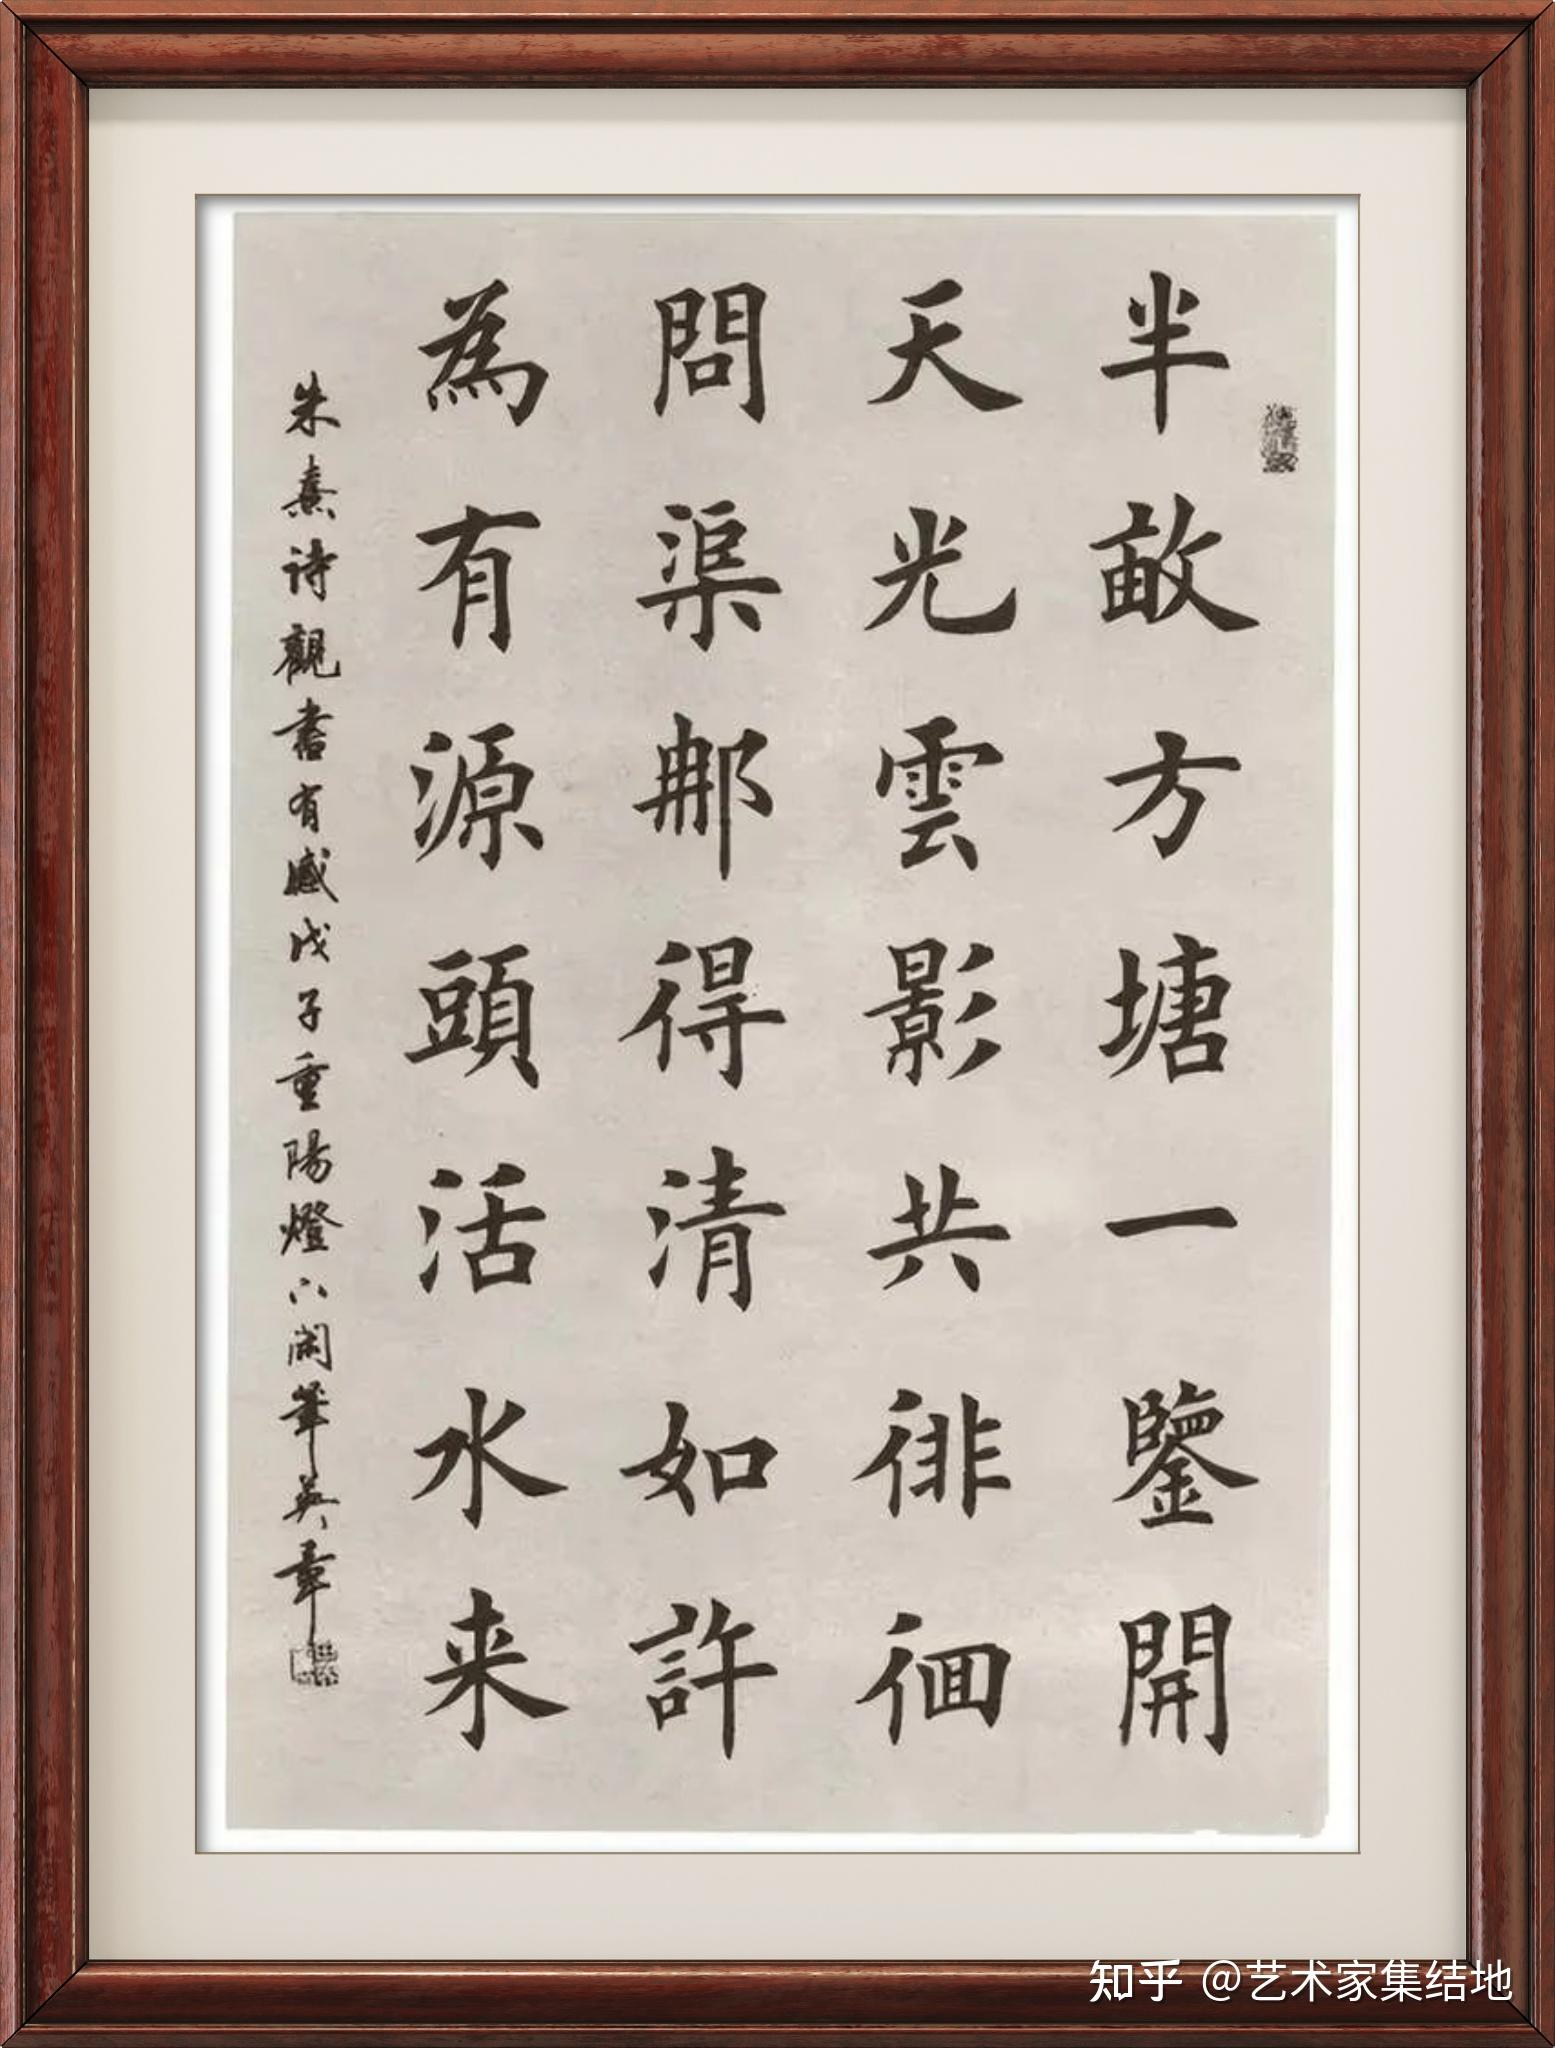 半畝方塘一鑒開
天光雲影共徘徊
問渠那得清如許
為有源頭活水来
朱熹诗觀書有感戊子重陽燈下闲筆英章
知乎 @艺术家集结地